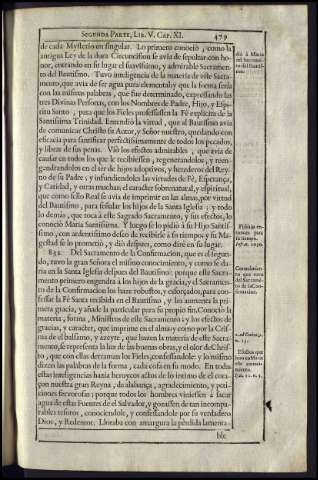 SEGUNDA PARTE, LIB. V. CAP. XI. 479
de cada Mysterio en singular. Lo primero conociò, como la
antigua Ley de la dura Circuncision se avia de sepultar con ho-
nor, entrando en su lugar el suavissimo, y admirable Sacramen-
to del Bautismo. Tuvo inteligencia de la materia de este Sacra-
mento, que avia de ser agua pura elemental: y que la forma seria
con las mismas palabras, que fue determinado, expressando las
tres Divinas Personas, con los Nombres de Padre, Hijo, y Espi-
ritu Santo, para que los Fieles professassen la Fè explicita de la
Santissima Trinidad. Entendiò la virtud, que al Bautismo avia
de comunicar Christo su Actor, y Señor nuestro, quedando con
eficacia para santificar perfectissimamente de todos los pecados,
y librar de sus penas. Viò los efectos admirables, que avia de
causar en todos los que le recibiessen, regenerandolos, y reen-
gendrandolos en el ser de hijos adoptivos, y herederos del Rey-
no de su Padre; y infundiendoles las virtudes de Fè, Esperança,
y Caridad, y otras muchas; el caracter sobrenatural, y espiritual,
que como sello Real se avia de imprimir en las almas, por virtud
del Bautismo, para señalar los hijos de la Santa Iglesia: y todo
lo demàs, que toca à este Sagrado Sacramento, y sus efectos, lo
conociò Maria Santissima. Y luego se lo pidiò à su Hijo Santis-
simo, con ardentissimo deseo de recibirle à su tiempo; y su Ma-
gestad se lo prometiò, y diò despues, como dirè en su lugar.
832. Del Sacramento de la Confirmacion, que es el segun-
do, tuvo la gran Señora el mismo conocimiento, y como se da-
ria en la Santa Iglesia despues del Bautismo: porque este Sacra-
mento primero engendra à los hijos de la gracia; y el Sacramen-
to de la Confirmacion los haze robustos, y esforçados, para con-
fessar la Fè Santa recibida en el Bautismo, y les aumenta la pri-
mera gracia, y añade la particular para su proprio fin. Conociò la
materia, forma, Ministros de este Sacramento; y los efectos de
gracia, y caracter, que imprime en el alma; y como por la Cris-
ma de el balsamo, y azeyte, que hazen la materia de este Sacra-
mento, se representa la luz de las buenas obras, y el olor de Chris-
to, que con ellas derraman los Fieles, confessandole: y lo mismo
dizen las palabras de la forma, cada cosa en su modo. En todas
estas inteligencias hazia heroycos actos de lo intimo de el cora-
çon nuestra gran Reyna, de alabança, agradecimiento, y peti-
ciones fervorosas; porque todos los hombres viniessen à sacar
agua de estas Fuentes de el Salvador, y gozassen de tan incompa-
rables tesoros, conociendole, y confessandole por su verdadero
Dios, y Redentor. Lloraba con amargura la pèrdida lamenta-
ble